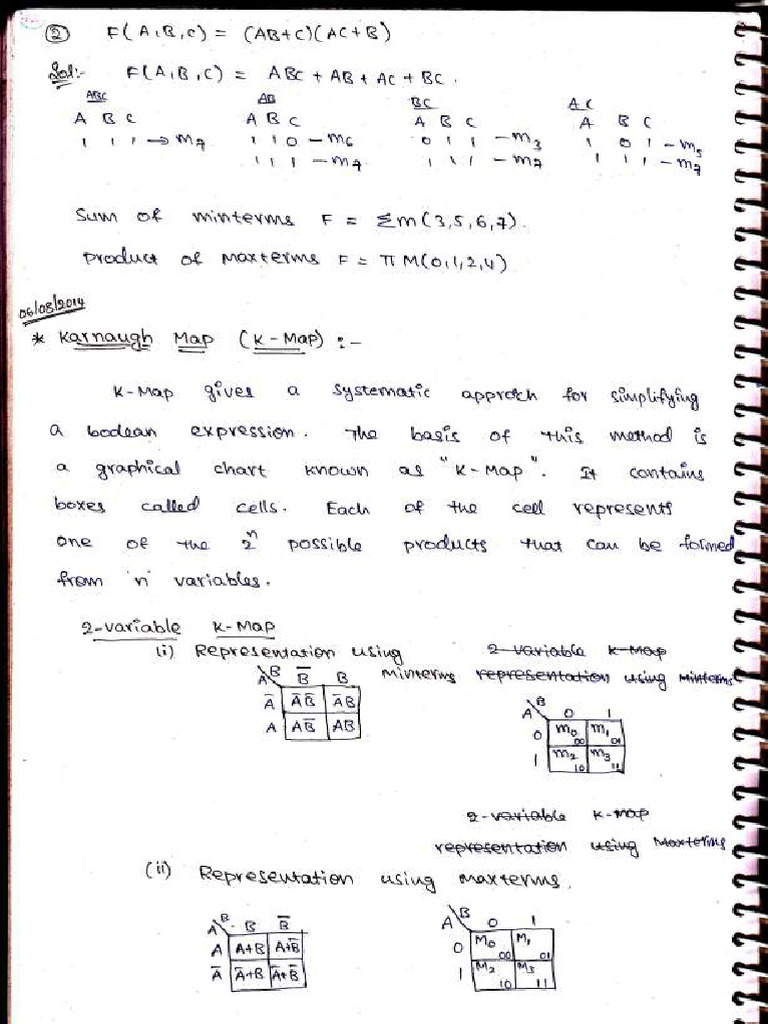 ② F(A,B,C) = (AB+C)(AC+B)
Sol:- F(A,B,C) = ABC + AB + AC + BC.
ABC AB BC AC
A B C A B C A B C A B C
1 1 1 → m7 1 1 0 – m6 0 1 1 – m3 1 0 1 – m5
1 1 1 – m7 1 1 1 – m7 1 1 1 – m7
Sum of minterms F = Σm(3,5,6,7).
Product of Maxterms F = π M(0,1,2,4)
06/08/2014
* Karnaugh Map (K-Map) :-
K-Map gives a systematic approch for simplifying
a boolean expression. The basis of this method is
a graphical chart known as "K-Map". It contains
boxes called cells. Each of the cell represents
one of the 2ⁿ possible products that can be formed
from 'n' variables.
2-variable K-Map
(i) Representation using 2-variable K-Map
Minterms representation using Minterms
A B B̅ B
A̅ A̅B̅ A̅B
A AB̅ AB
A B 0 1
0 m0 00 m1 01
1 m2 10 m3 11
2-variable K-map
representation using Maxterms
(ii) Representation using Maxterms.
A B B B̅
A A+B A+B̅
A̅ A̅+B A̅+B̅
A B 0 1
0 M0 00 M1 01
1 M2 10 M3 11